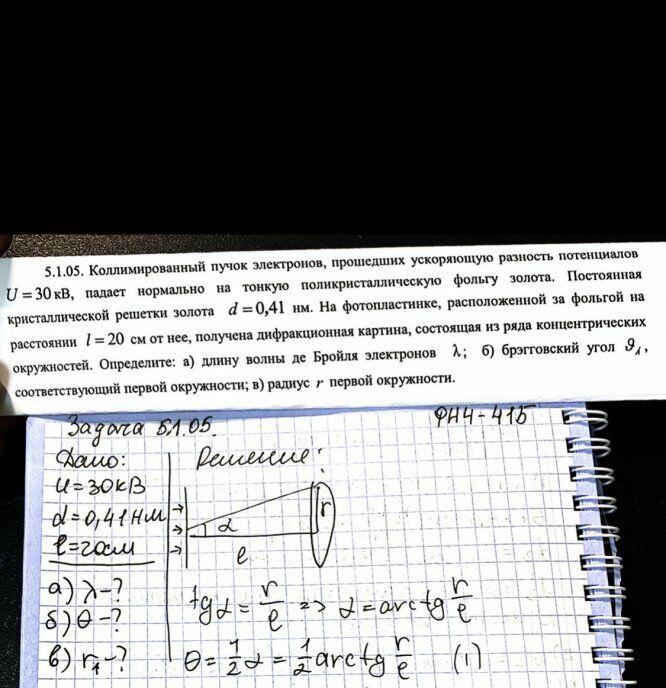 5.1.05. Коллимированный пучок электронов, прошедших ускоряющую разность потенциалов
U = 30 кВ, падает нормально на тонкую поликристаллическую фольгу золота. Постоянная
кристаллической решетки золота d = 0,41 нм. На фотопластинке, расположенной за фольгой на
расстоянии l = 20 см от нее, получена дифракционная картина, состоящая из ряда концентрических
окружностей. Определите: а) длину волны де Бройля электронов λ; б) брэгговский угол ϑ₁,
соответствующий первой окружности; в) радиус r первой окружности.
Задача 5.1.05. ФН4-41Б
Дано: Решение:
U=30кВ
d=0,41нм
l=20см
α
r
l
а) λ-?
б) θ-?
в) r₁-?
tgα = r/l => α = arctg r/l
θ = 1/2 α = 1/2 arctg r/l (1)